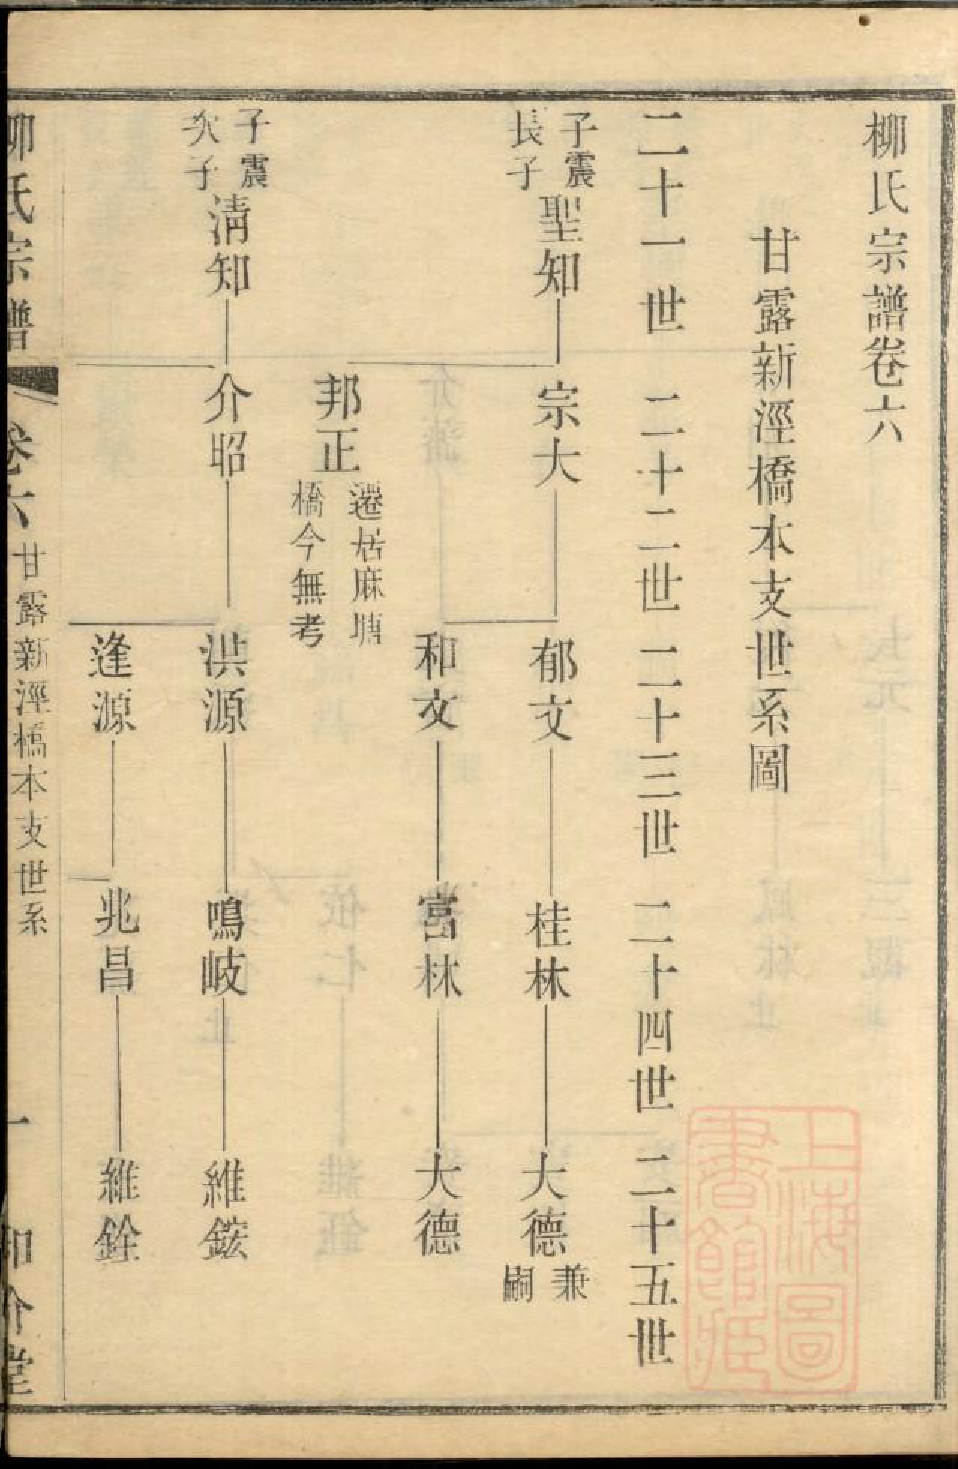 柳氏宗譜卷六
甘露新涇橋本支世系圖
二十一世 二十二世 二十三世 二十四世 二十五世
子震
長子
聖知 宗大 郁文 桂林 大德
兼
嗣
和文 富林 大德
邦正
遷居麻塘
橋今無考
子震
次子
清知 介昭 洪源 鳴岐 維鋐
逢源 兆昌 維銓
柳氏宗譜 卷六 甘露新涇橋本支世系 一
上海圖
書館藏